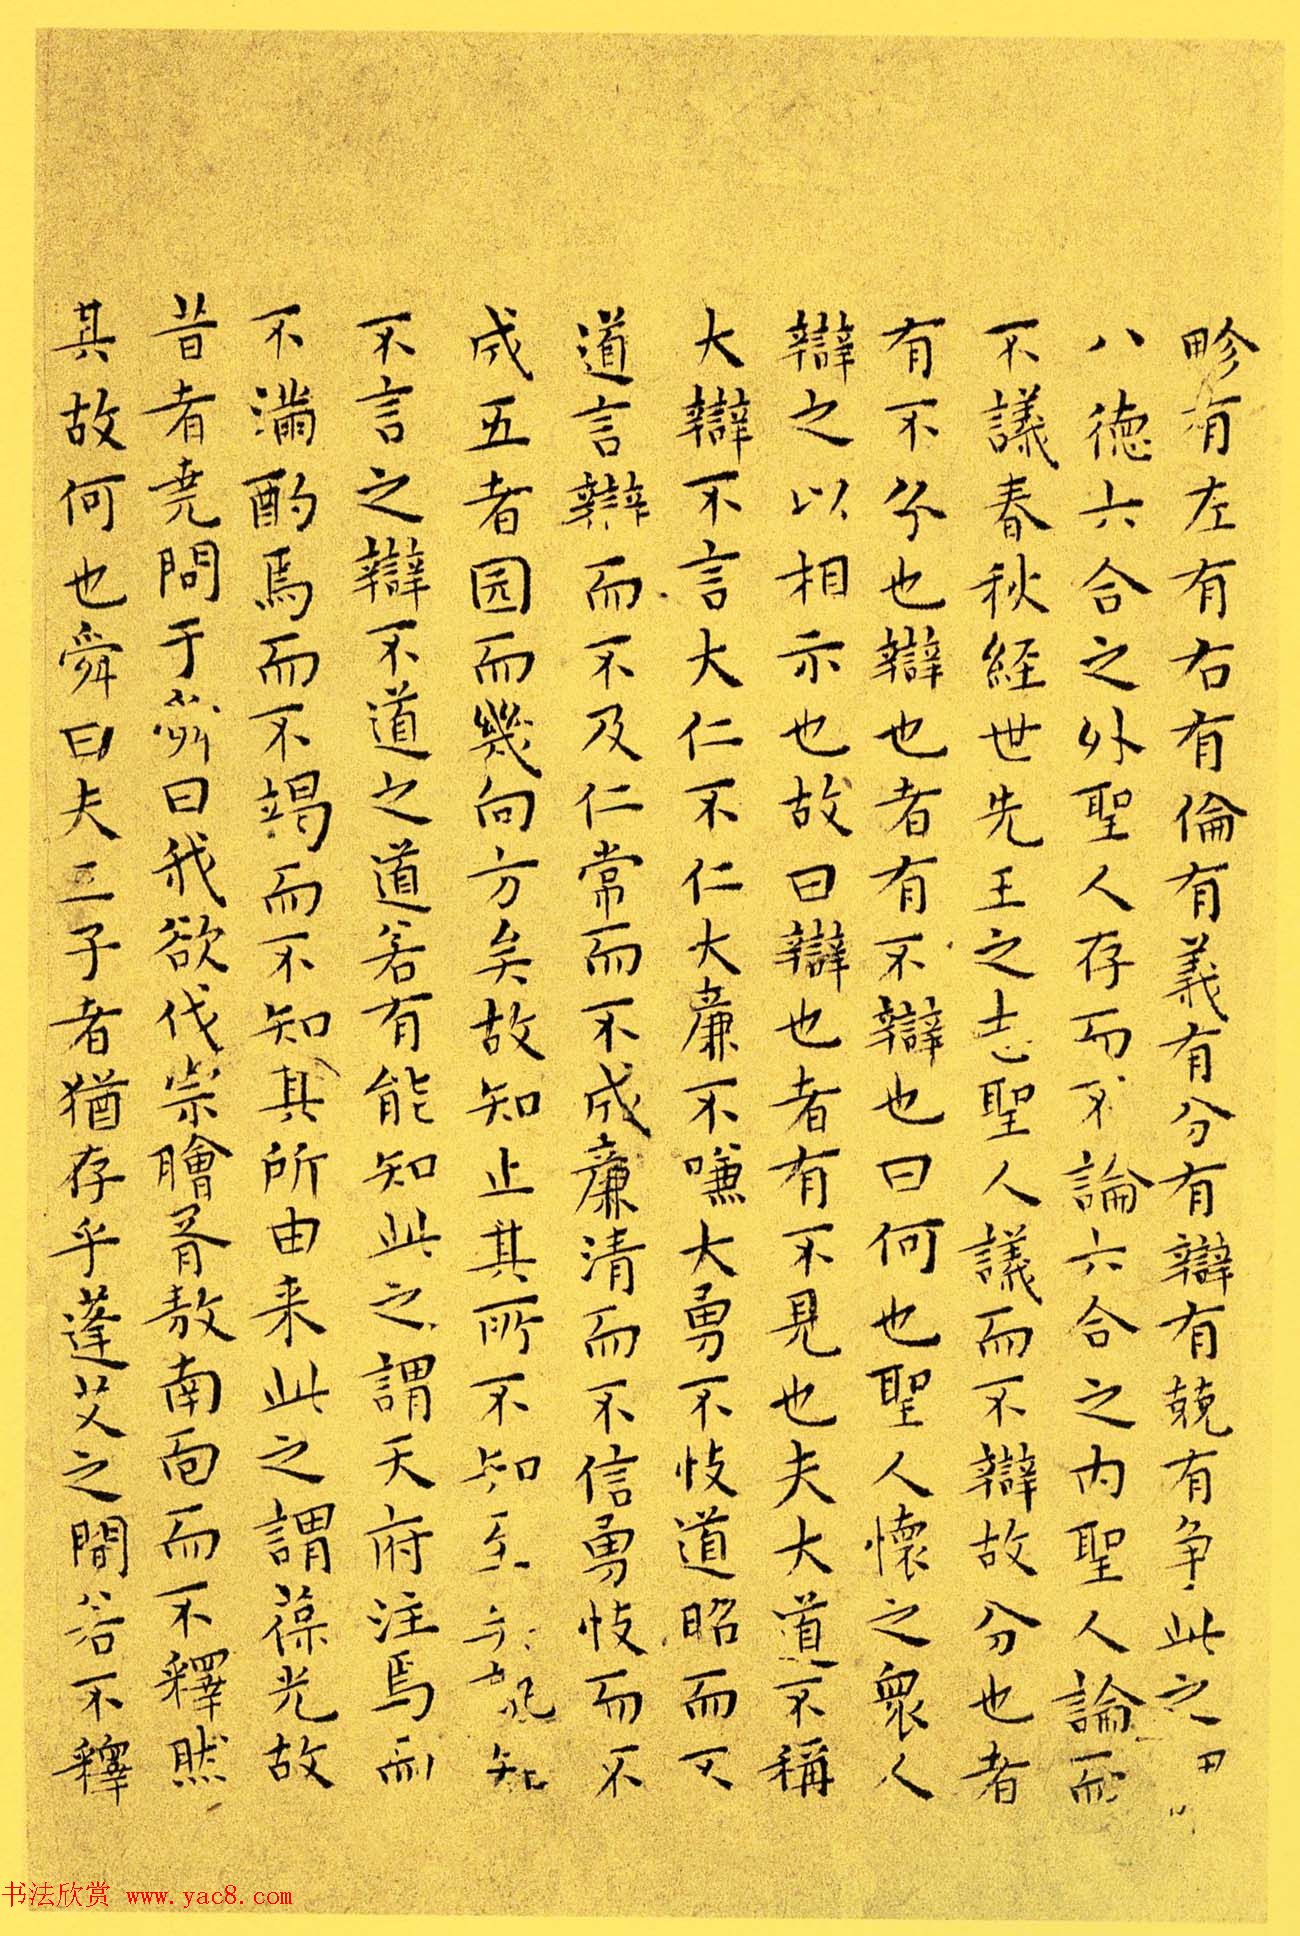 畛有左有右有倫有義有分有辯有競有争此之
八德六合之外聖人存而不論六合之内聖人論而
不議春秋經世先王之志聖人議而不辯故分也者
有不分也辯也者有不辯也曰何也聖人懷之衆人
辯之以相示也故曰辯也者有不見也夫大道不稱
大辯不言大仁不仁大廉不嗛大勇不忮道昭而不
道言辯而不及仁常而不成廉清而不信勇忮而不
成五者园而幾向方矣故知止其所不知至矣孰知
不言之辯不道之道若有能知此之謂天府注焉而
不滿酌焉而不竭而不知其所由来此之謂葆光故
昔者尭問于舜曰我欲伐宗膾胥敖南面而不釋然
其故何也舜曰夫三子者猶存乎蓬艾之間若不釋
书法欣赏 www.yac8.com